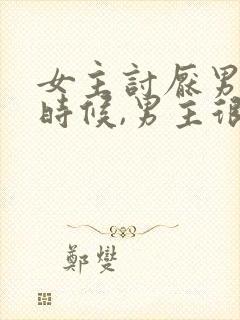 女主討厭男
時候,男主很
鄭燮